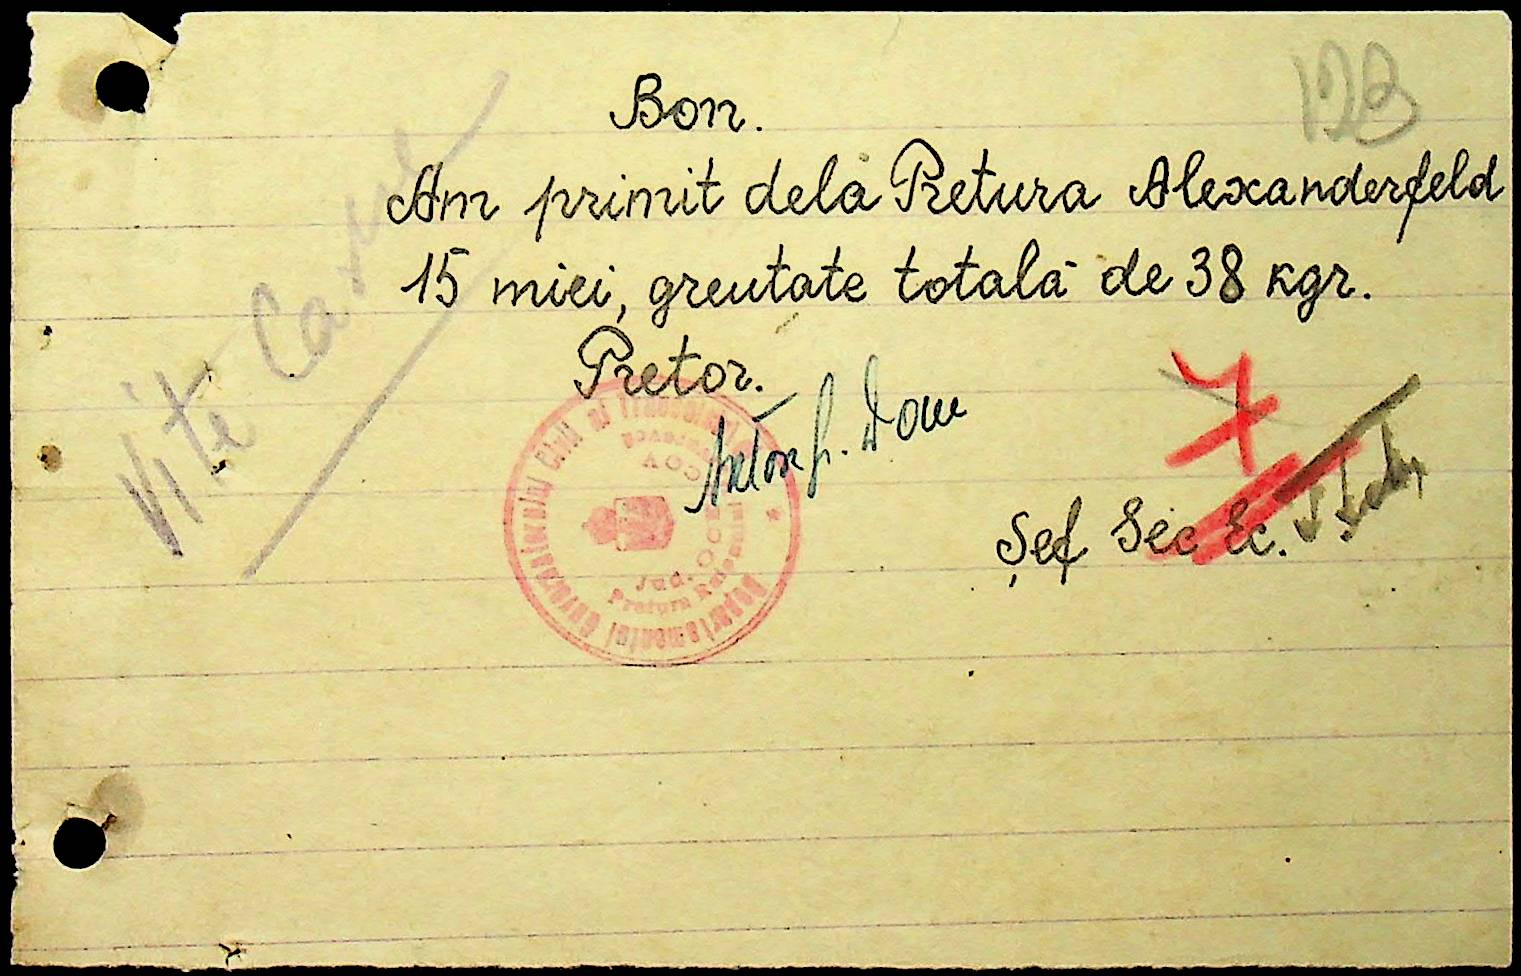 123
Bon.
Am primit dela Pretura Alexanderfeld
15 miei, greutate totală de 38 kgr.
Pretor.
Vite Carne
7
Șef Sec Ec.
Departamentul Guvernământului Civil al Transnistriei
Pretura Raionului
Jud. OCEACOV